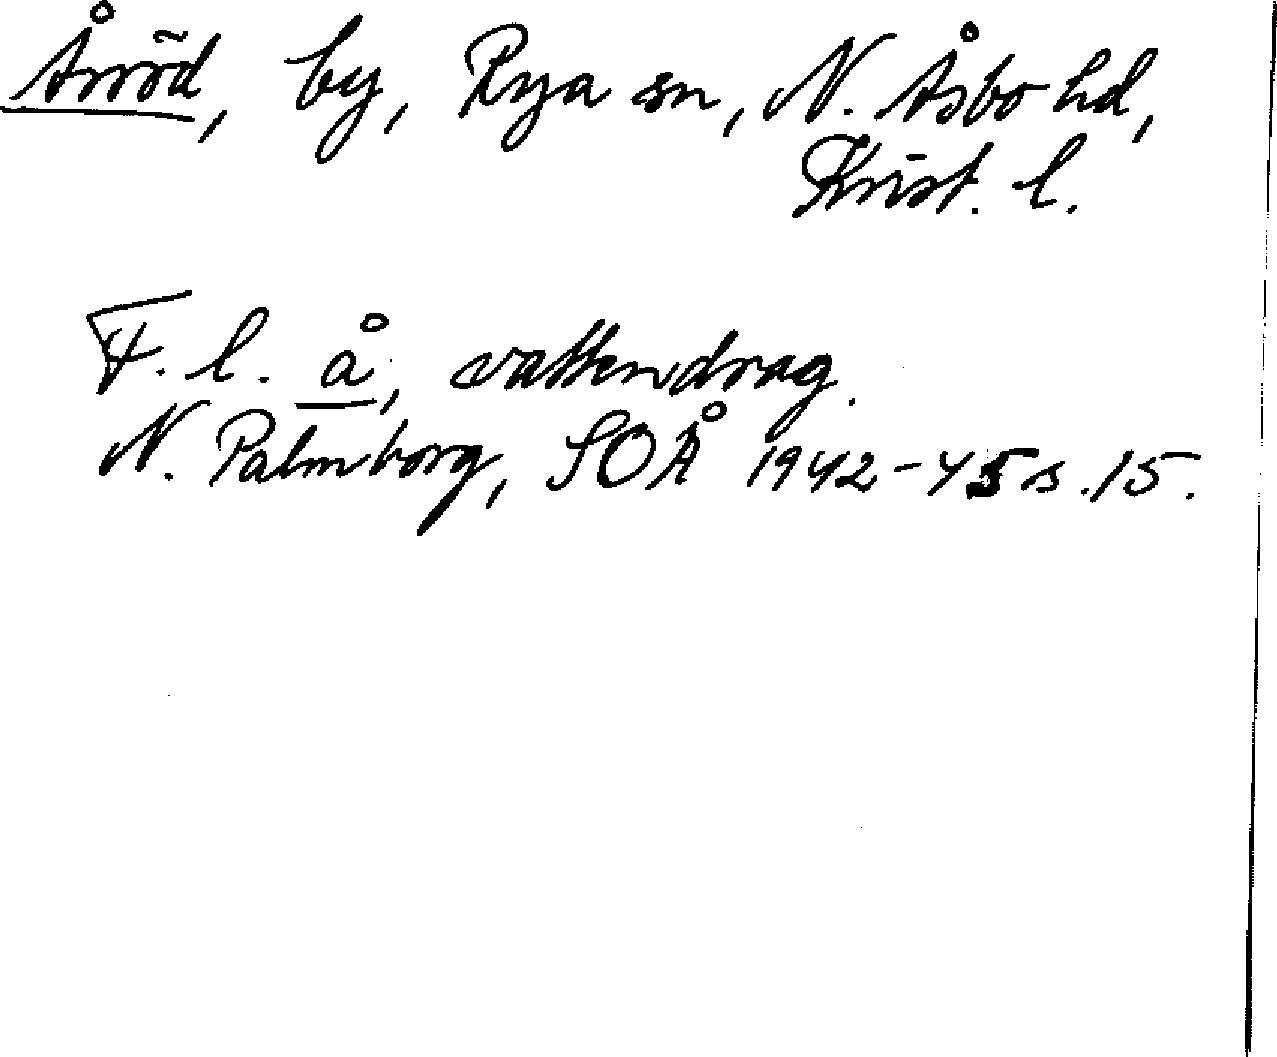 Årröd, by, Rya sn, N. Åsbo hd,
Krist. l.
F. l. å, vattendrag.
N. Palmborg, SOÅ 1942-45 s. 15.